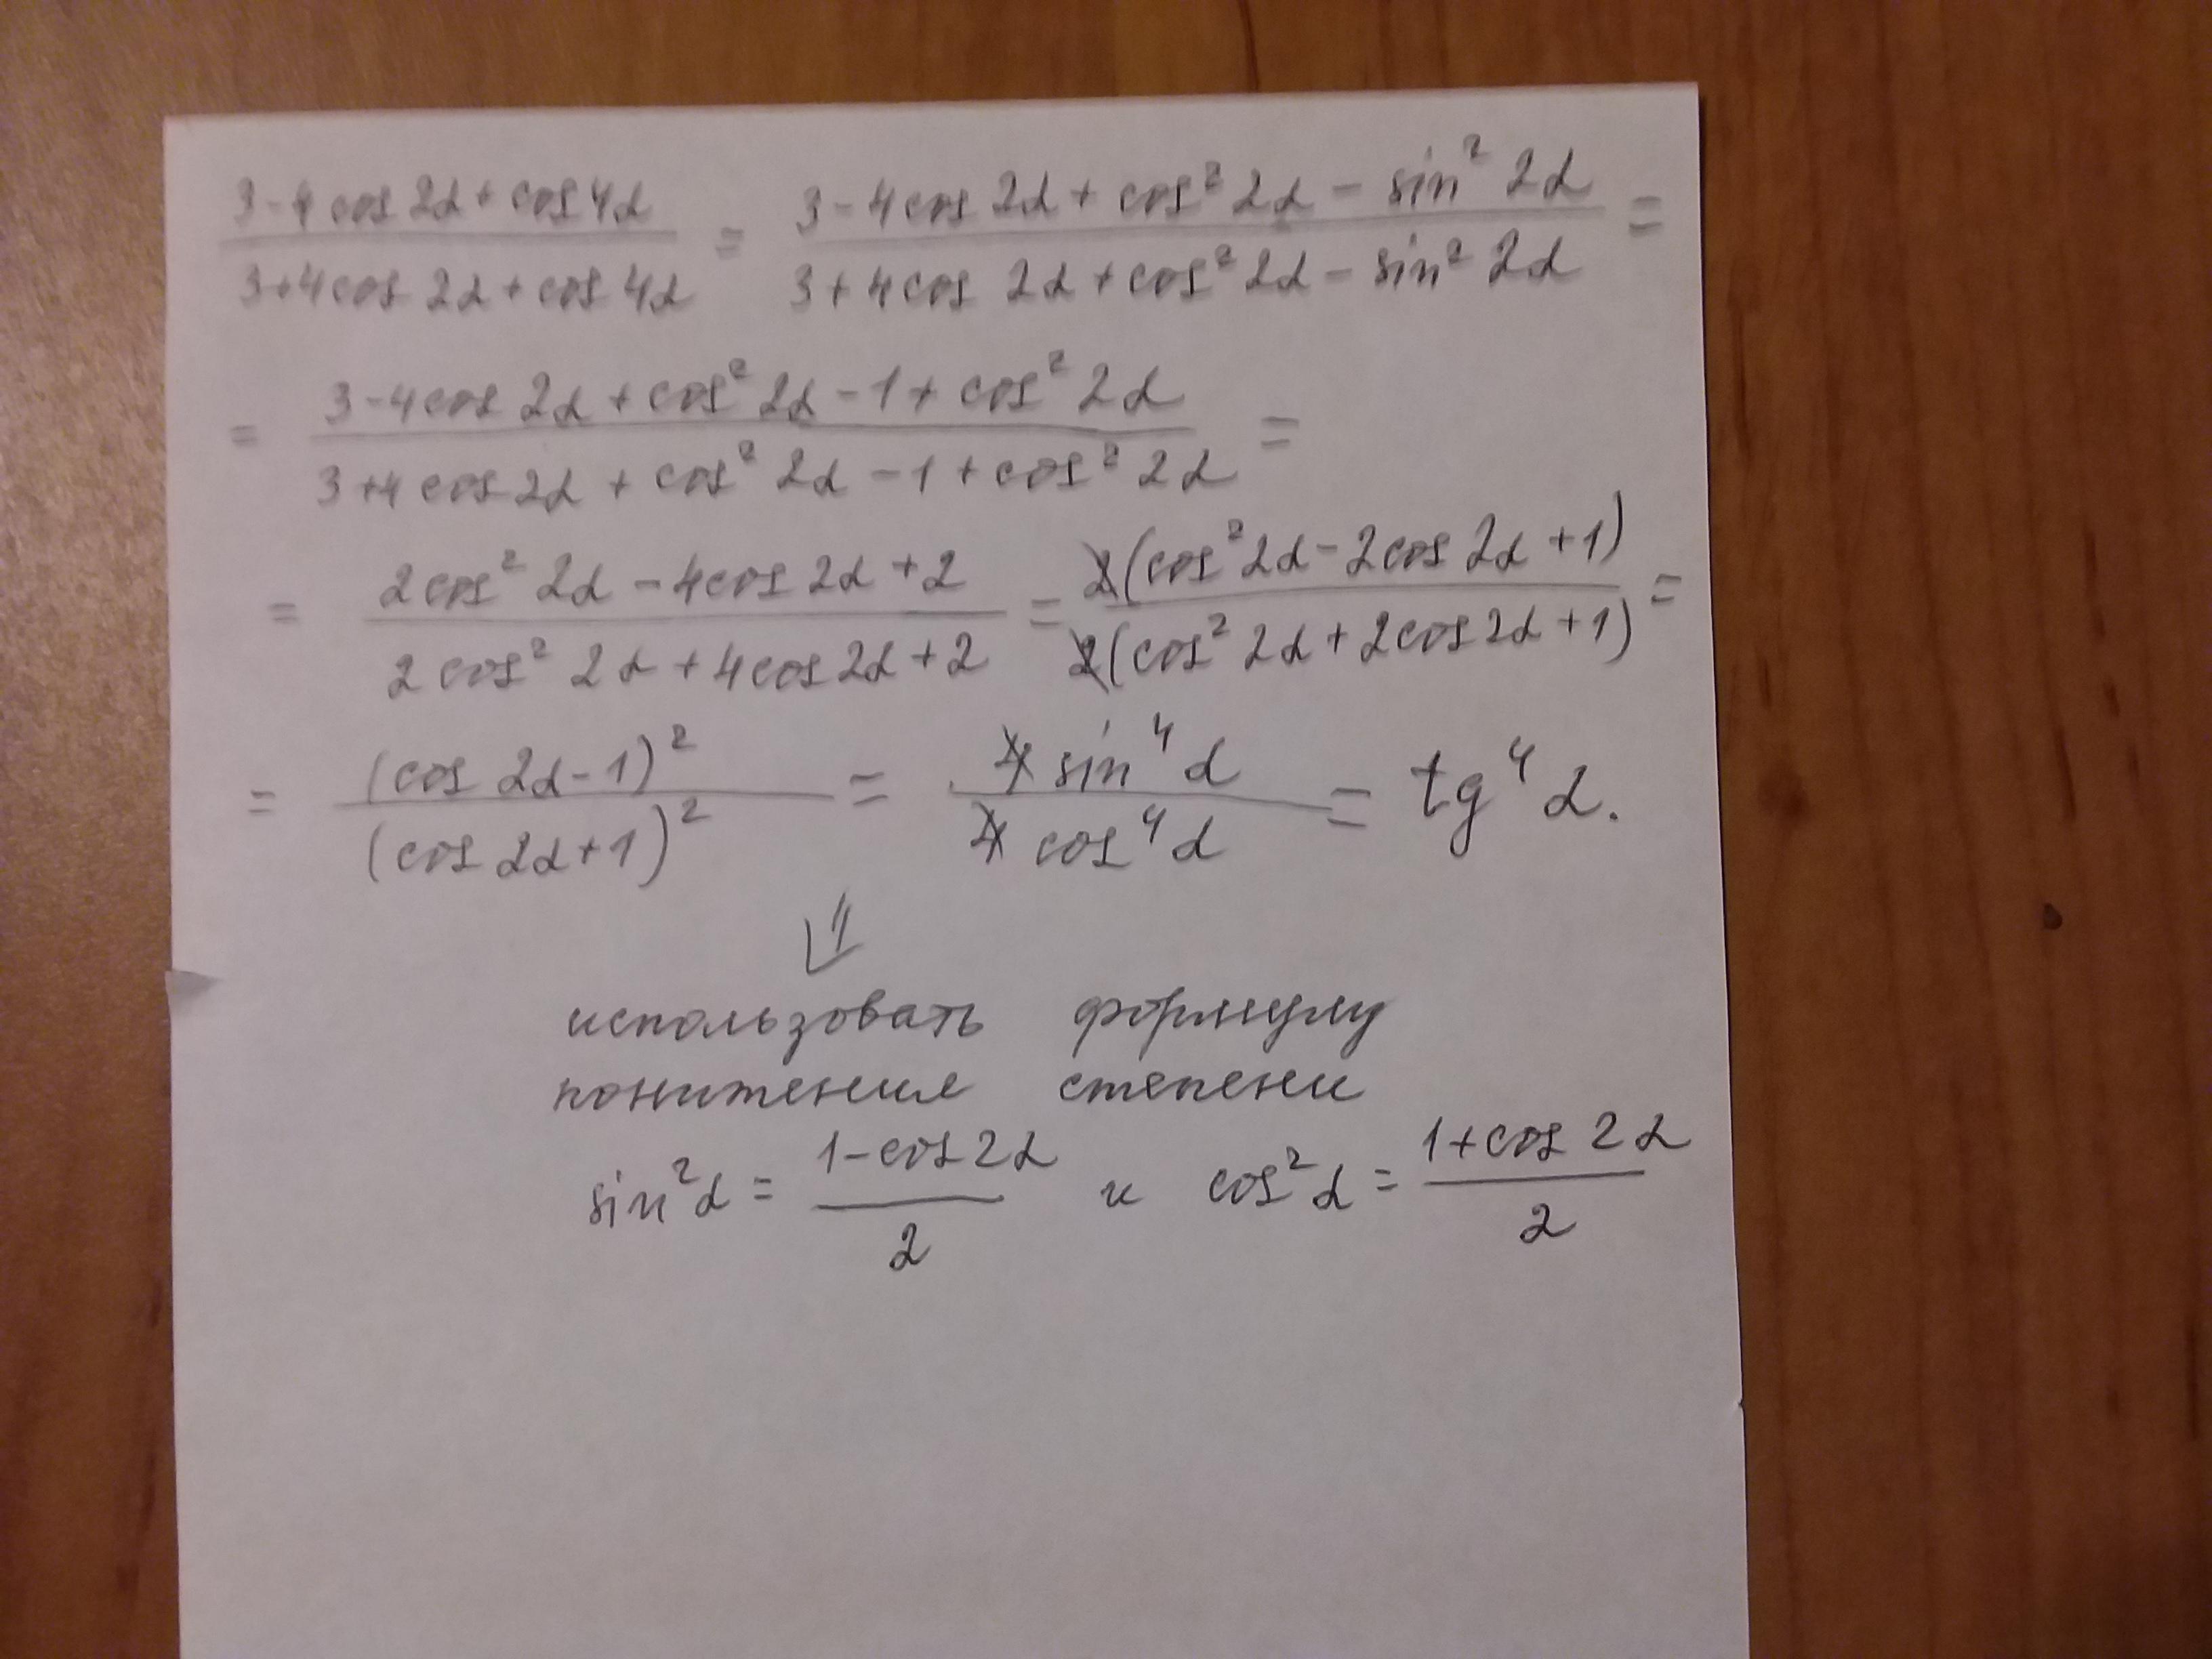 (3-4cos 2α + cos 4α)/(3+4cos 2α + cos 4α) = (3-4cos 2α + cos² 2α - sin² 2α)/(3+4cos 2α + cos² 2α - sin² 2α) =
= (3-4cos 2α + cos² 2α - 1 + cos² 2α)/(3+4cos 2α + cos² 2α - 1 + cos² 2α) =
= (2cos² 2α - 4cos 2α + 2)/(2cos² 2α + 4cos 2α + 2) = 2(cos² 2α - 2cos 2α + 1)/2(cos² 2α + 2cos 2α + 1) =
= (cos 2α - 1)²/(cos 2α + 1)² = 4 sin⁴ α/4 cos⁴ α = tg⁴ α.
⇓
использовать формулу
понижения степени
sin² α = (1 - cos 2α)/2 и cos² α = (1 + cos 2α)/2